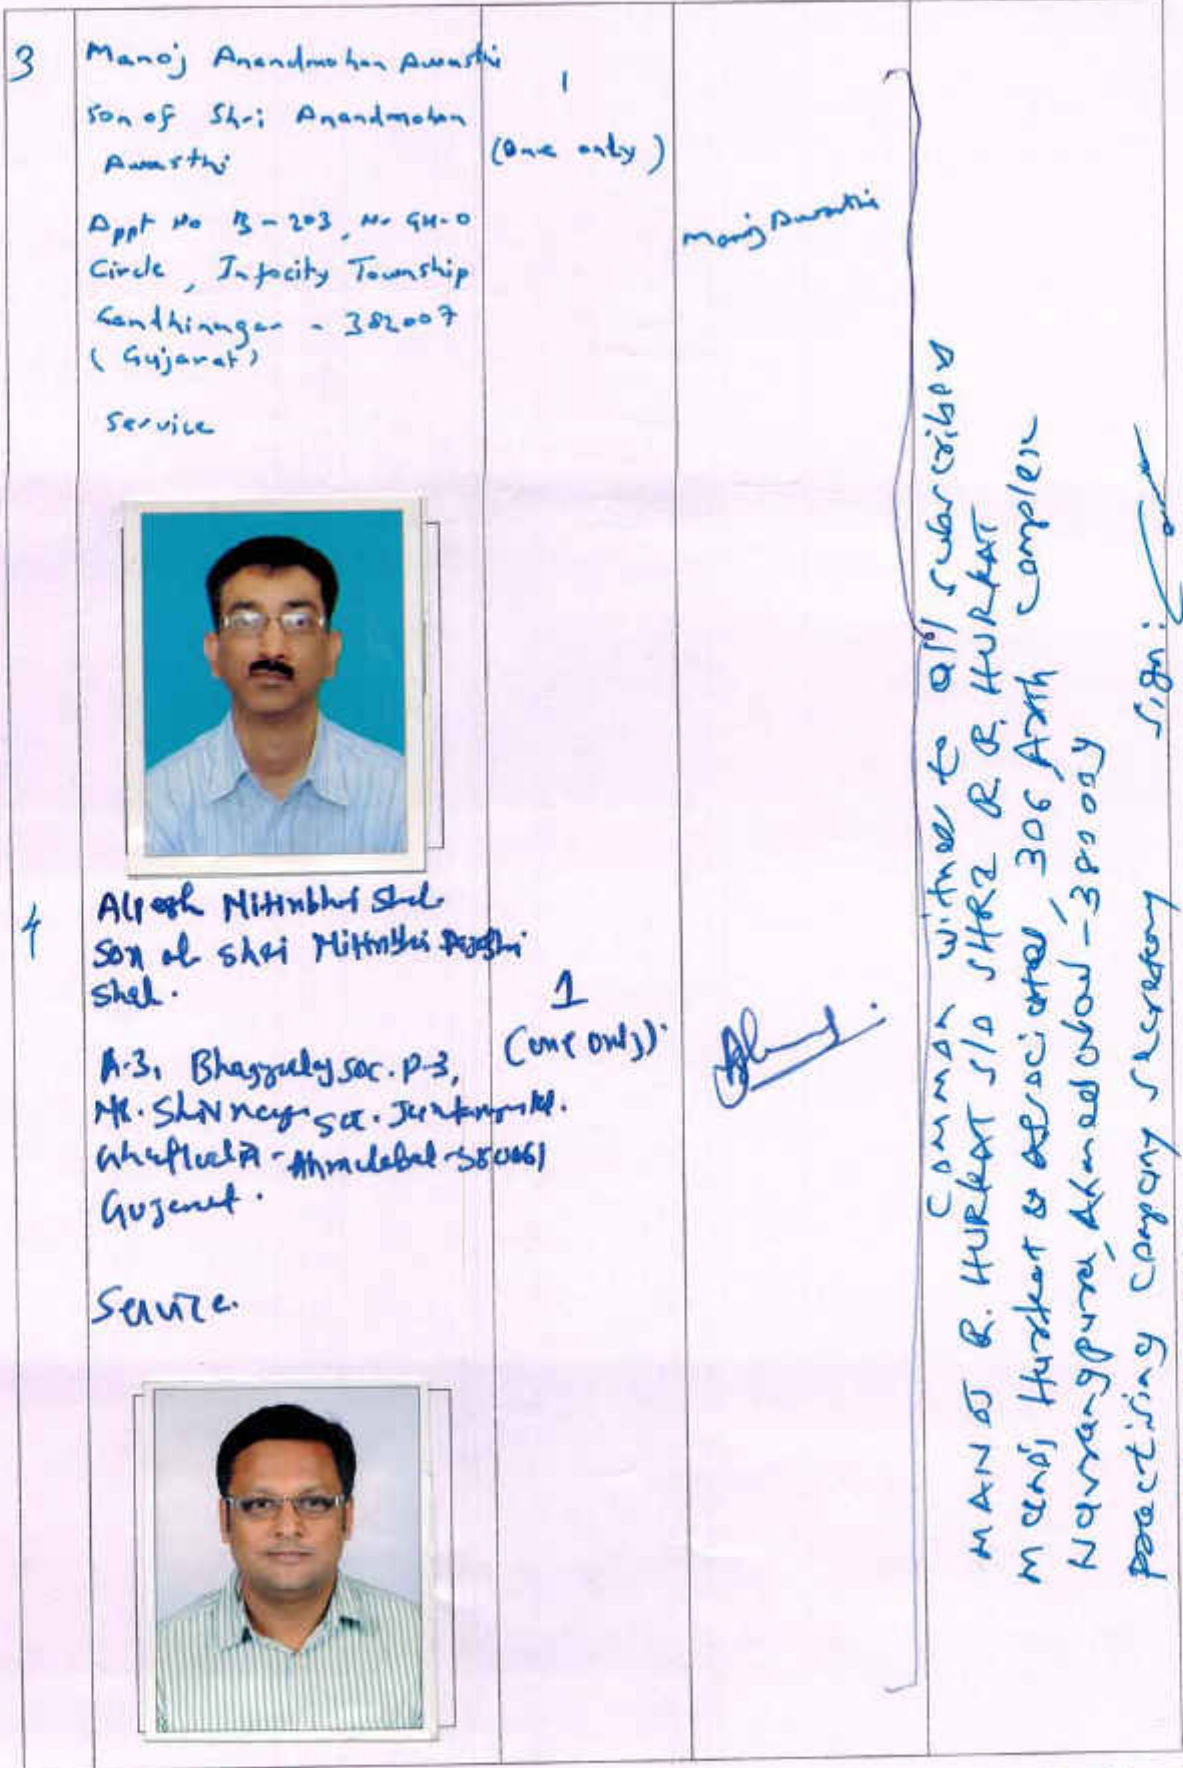 3
Manoj Anandmohan Awasthi
son of Shri Anandmohan
Awasthi
Appt No B-203, Nr GH-0
Circle, Infocity Township
Gandhinagar - 382007
(Gujarat)
Service
1
(One only)
Manoj Awasthi
4
Alpesh Nitinbhai Shah
Son of Shri Nitinbhai
Shah.
A-3, soc. P-3,
Nr. Shivnagar soc.
Ghatlodia - Ahmedabad - 380061
Gujarat.
Service.
1
(one only).
Common witness to all subscribers
MANOJ R. HURKAT S/O SHRI R. R. HURKAT
Manoj Hurkat & Associates, 306, Arth Complex
Navrangpura, Ahmedabad - 380009
practising company secretary sign: